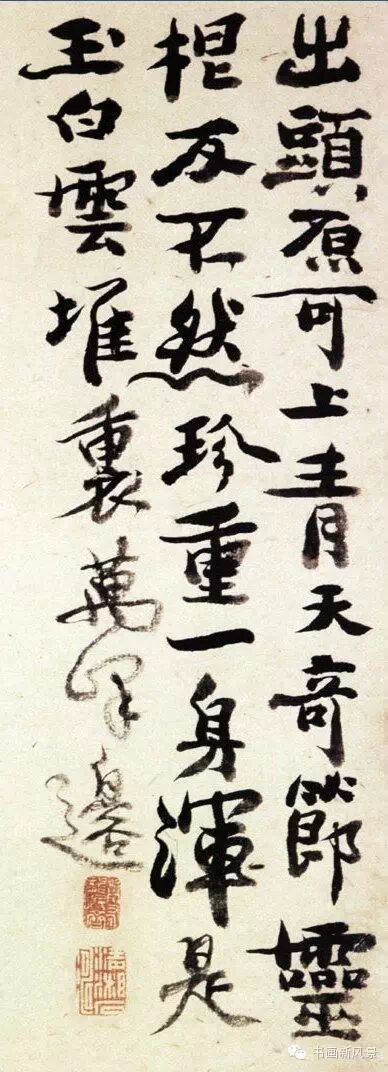 出頭原可上青天奇節靈
根反不然珍重一身渾是
玉白雲堆裏萬峰邊
书画新风景